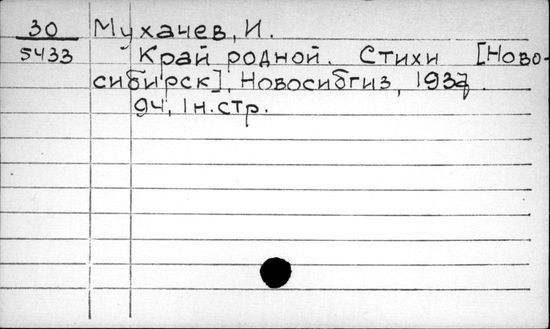 30 Мухачев, И.
5433 Край родной. Стихи [Ново-
сибирск], Новосибгиз, 1937.
94, 1н.стр.